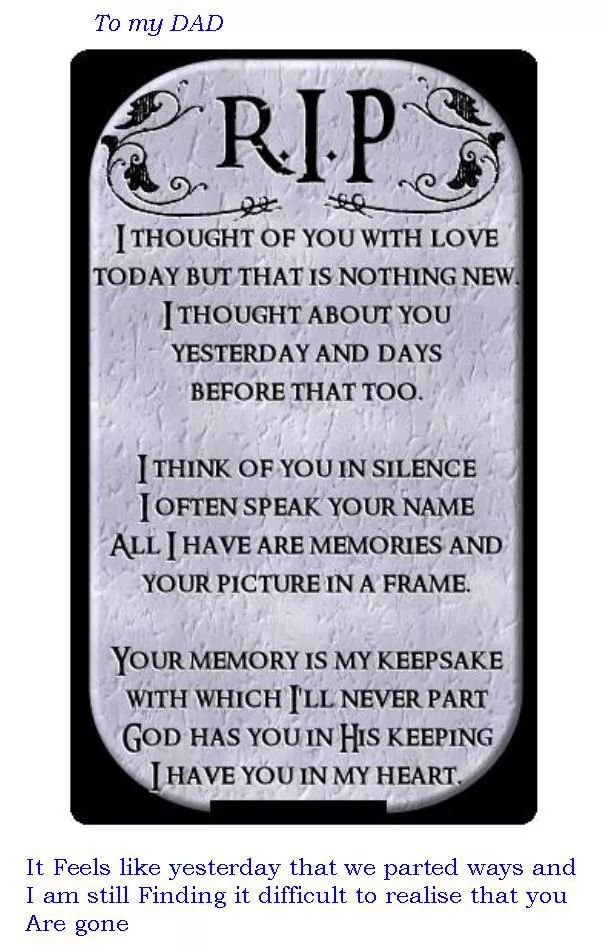 To my DAD
R.I.P
I THOUGHT OF YOU WITH LOVE
TODAY BUT THAT IS NOTHING NEW.
I THOUGHT ABOUT YOU
YESTERDAY AND DAYS
BEFORE THAT TOO.
I THINK OF YOU IN SILENCE
I OFTEN SPEAK YOUR NAME
ALL I HAVE ARE MEMORIES AND
YOUR PICTURE IN A FRAME.
YOUR MEMORY IS MY KEEPSAKE
WITH WHICH I'LL NEVER PART
GOD HAS YOU IN HIS KEEPING
I HAVE YOU IN MY HEART.
It Feels like yesterday that we parted ways and
I am still Finding it difficult to realise that you
Are gone